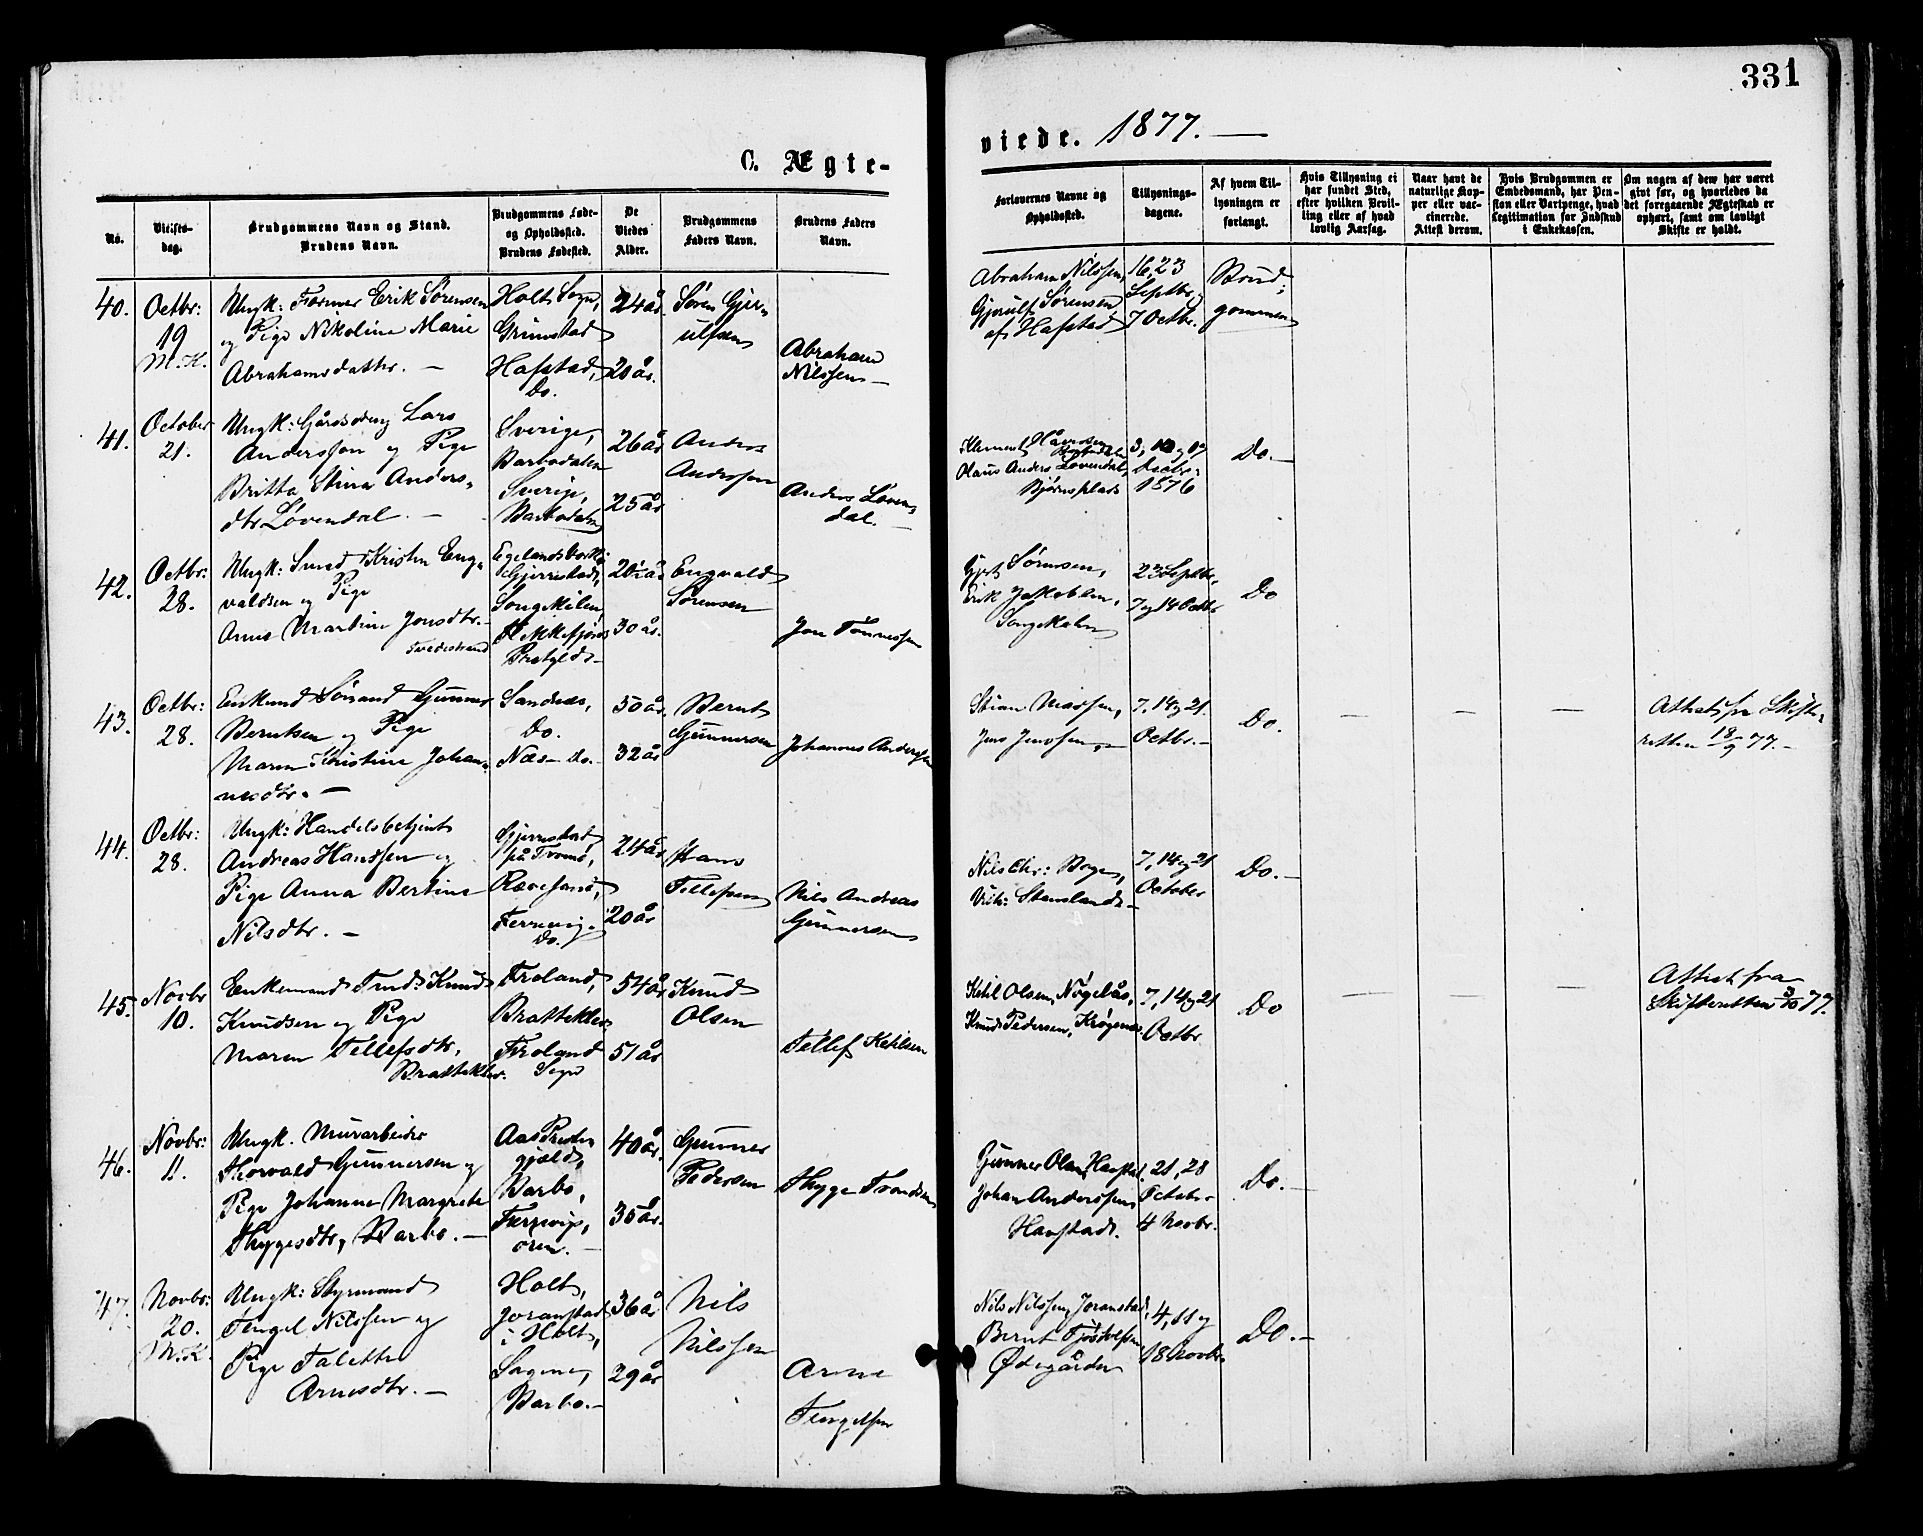 331
C. Ægte-
viede. 1877. —
No.
Vielses-
dag.
Brudgommens Navn og Stand.
Brudens Navn.
Brudgommens Føde-
og Opholdssted.
Brudens Fødested.
De
Viedes
Alder.
Brudgommens
Faders Navn.
Brudens Faders
Navn.
Forlovernes Navne og
Opholdssted.
Tillysnings-
dagene.
Af hvem Til-
lysningen er
forlangt.
Hvis Tillysning ei
har fundet Sted,
efter hvilken Bevil-
ling eller af hvad
lovlig Aarsag.
Naar havt de
naturlige Kop-
per eller vac-
cinerede.
Attest derom.
Hvis Brudgommen er
Embedsmand, har Pen-
sion eller Vartpenge, hvad
Legitimation for Indskud
i Enkekassen.
Om nogen af dem har været
givt før, og hvorledes da
det foregaaende Ægteskab er
ophørt, samt om lovligt
Skifte er holdt.
40.
Octbr:
19
M.K.
Ungk: Farmer Erik Sørensen
og Pige Nikoline Marie
Abrahamsdatter. —
Holt Sogn,
Grimstad
Hafstad,
Do.
24 år
20 år.
Søren Gjer-
ulfsen
Abraham
Nilssen —
Abraham Nilssen,
Gjerulf Sørensen
af Hafstad
16, 23
Septbr,
7 Octbr.
Brud-
gommen
41.
October
21.
Ungk: Gårdsdreng Lars
Andersson og Pige
Britta Stina Anders-
dtr Løvendal. —
Sverige,
Barbodalen
Sverige,
Barbodalen
26 år
25 år
Anders
Andersson
Anders Løven-
dal. —
Klement
Hans Anders Løvendal,
Bjørnsplads
3, 10 og 17
Decbr:
1876
Do. —
42.
Octbr:
28.
Ungk: Smed Kristen Eng-
valdsen og Pige
Anne Martine Jonsdtr. —
Tvedestrand
Egelands Værk,
Gjerrestad,
Songekilen
Flekkefjords
Prstgld. —
30 år.
Engvald
Sørensen
Jon Tønnessen
Gjert Sørensen,
Erik Jakobsen,
23 Septbr,
7 og 14 Octbr
Do
43.
Octbr:
28.
Enkemd Sørand Gunner
Berntsen og Pige
Maren Kristine Johan-
nesdtr. —
Sandnes,
Do.
Næs Do. —
50 år.
32 år
Bernt
Gunnersen
Johannes Andersen
Stian Niassen,
Jens Jenssen, —
7, 14 og 21.
Octbr. —
Do.
—
—
—
Attest fra Skifte-
retten 18/9 77. —
44.
Octbr:
28.
Ungk: Handelsbetjent
Andreas Hanssen og
Pige Anna Bertine
Nilsdtr. —
Gjerrestad
på Tromø,
Revesand,
Fervig.
Do.
24 år
20 år
Hans
Tellefsen
Nils Andreas
Gunnersen
Nils Chr: Boye,
Vilh: Stensland. —
7, 14 og 21
October
Do. —
45.
Novbr
10.
Enkemand Tmd: Knud
Knudsen og Pige
Maren Tellefsdtr,
Bratteklev.
Froland,
Bratteklev,
Froland
Sogn
54 år
51 år
Knud
Olsen
Tellef Ketilsen
Ketil Olsen, Nøgelås,
Knud Pedersen, Krøgenes
7, 14 og 21
Octbr
Do
—
—
—
Attest fra
Skifteretten 3/10 77.
46.
Novbr:
11.
Ungk. Murarbeider
Thorvald Gunnersen og
Pige Johanne Margrete
Thygesdtr, Barbo. —
Aas Preste-
gjæld,
Barbo,
Fervig,
40 år.
35 år.
Gunner
Pedersen
Thyge Trondsen
Gunner Olsen, Havstad.
Johan Anderssen
Havstad.
21, 28
October
4 Novbr.
Do. —
47.
Novbr:
20.
M.K.
Ungk: Styrmand
Tengel Nilssen og
Pige Talette
Arnesdtr. —
Holt,
Joranstad
i Holt,
Sagene,
Barbo. —
36 år
29 år
Nils
Nilssen
Arne
Tengelsen
Nils Nilssen, Joranstad,
Bernt Tjøstolfsen
Ødegården
4, 11 og
18 Novbr.
Do. —